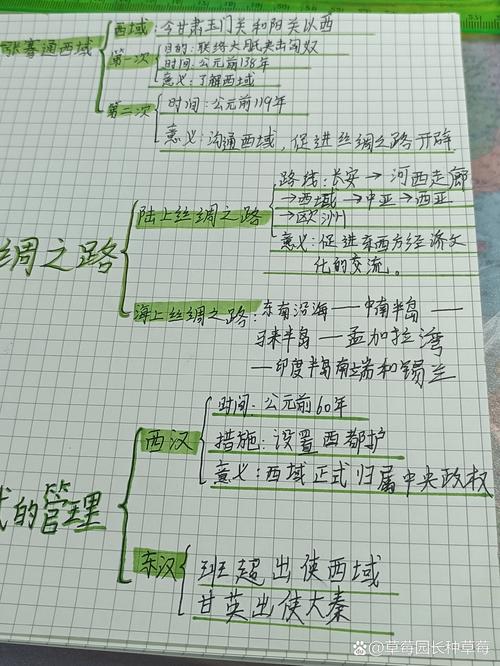 张骞通西域
西域：今甘肃玉门关和阳关以西
第一次
目的：联络大月氏夹击匈奴
时间：公元前138年
意义：了解西域
第二次
时间：公元前119年
意义：沟通西域，促进丝绸之路开辟
绸之路
陆上丝绸之路
路线：长安→河西走廊
→西域→中亚→西亚
→欧洲
意义：促进东西方经济文
化的交流。
海上丝绸之路：东南沿海——中南半岛——
马来半岛——孟加拉湾
——印度半岛南端和锡兰
的管理
西汉
时间：公元前60年
措施：设置西都护
意义：西域正式归属中央政权
东汉
班超出使西域
甘英出使大秦
@草莓园长种草莓